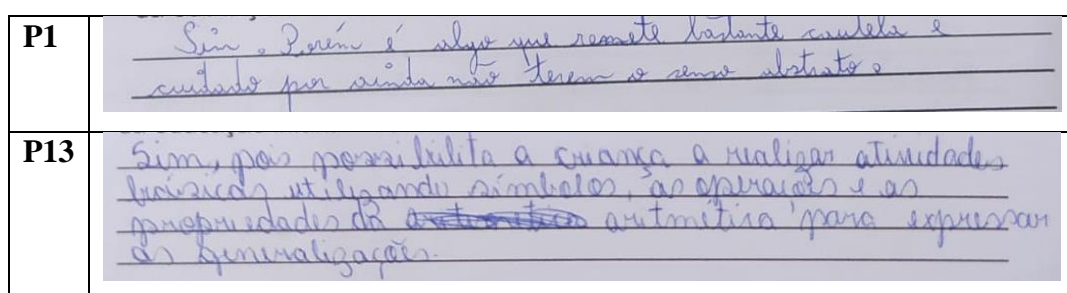 P1
Sim. Porém é algo que remete bastante cautela e
cuidado por ainda não terem o senso abstrato.
P13
Sim, pois possibilita a criança a realizar atividades
básicas utilizando símbolos, as operações e as
propriedades da aritmética para expressar
as generalizações.